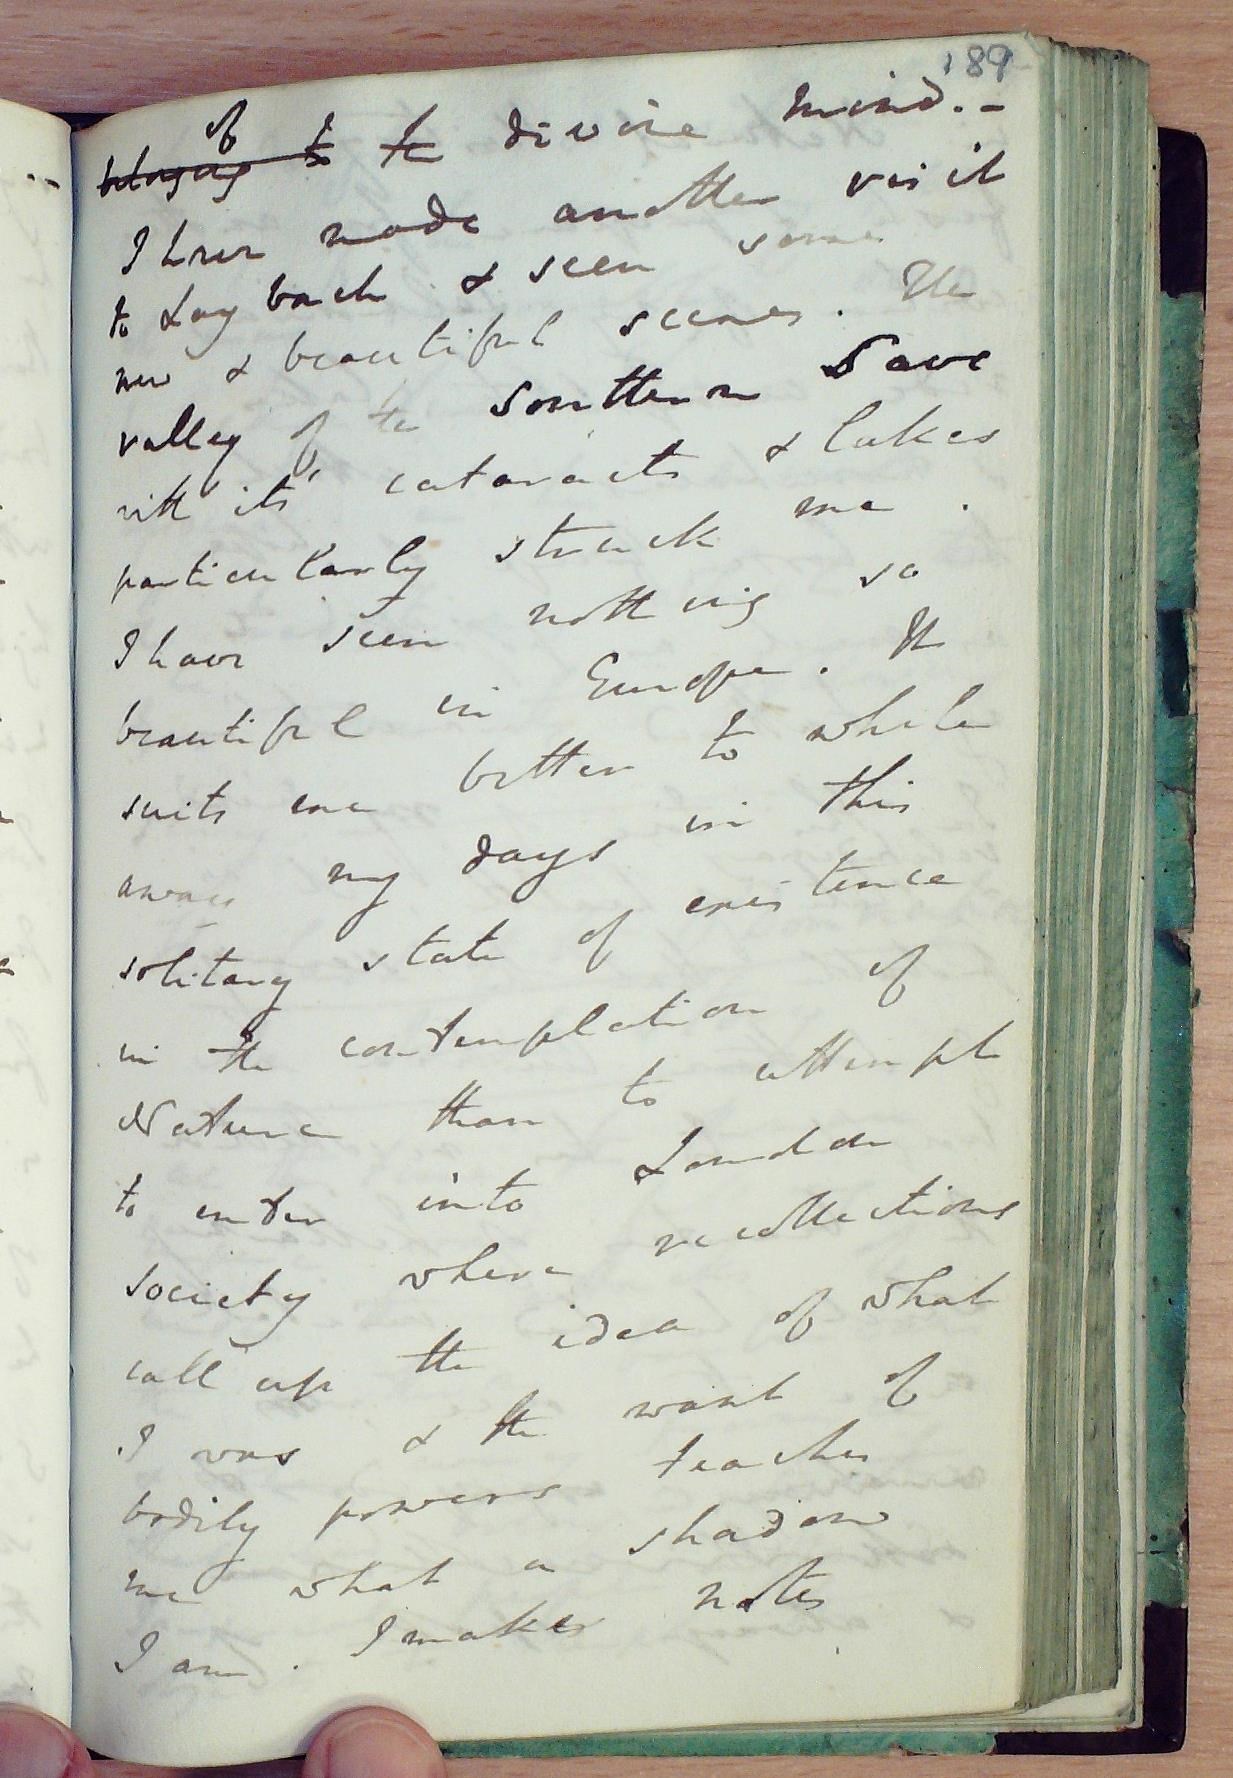 189
of
belonging to the divine mind. -
I have made another visit
to Laybach & seen some
new & beautiful scenes. The
valley of the Southern Save
with its' cataracts & lakes
particularly struck me.
I have seen nothing so
beautiful in Europe. It
suits me better to while
away my days in this
solitary state of existence
in the contemplation of
Nature than to attempt
to enter into London
society where recollections
call up the idea of what
I was & the want of
bodily powers teaches
me what a shadow
I am. I make notes